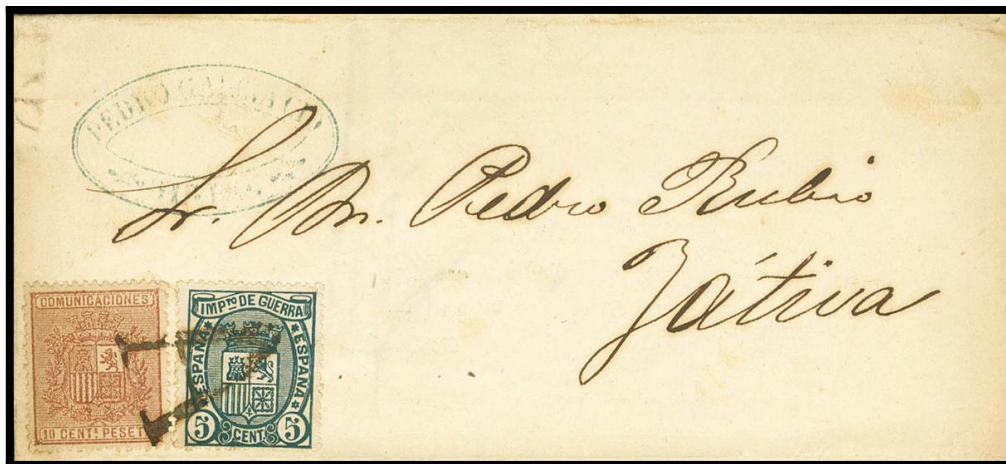 PEDRO
Sr. Dn. Pedro Rubio
Játiva
COMUNICACIONES
10 CENTS PESETA
IMPTO DE GUERRA
ESPAÑA ESPAÑA
5 CENTS 5